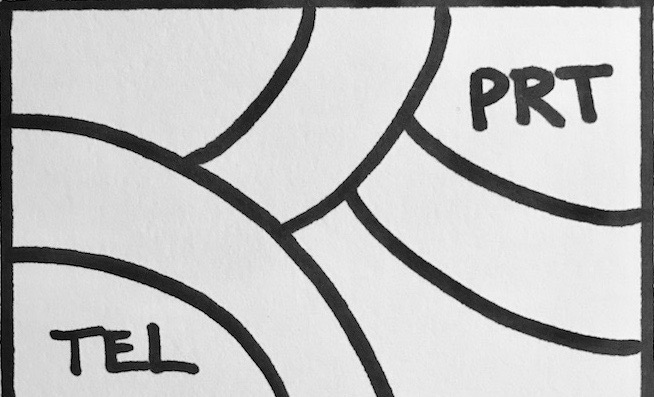 PRT
TEL